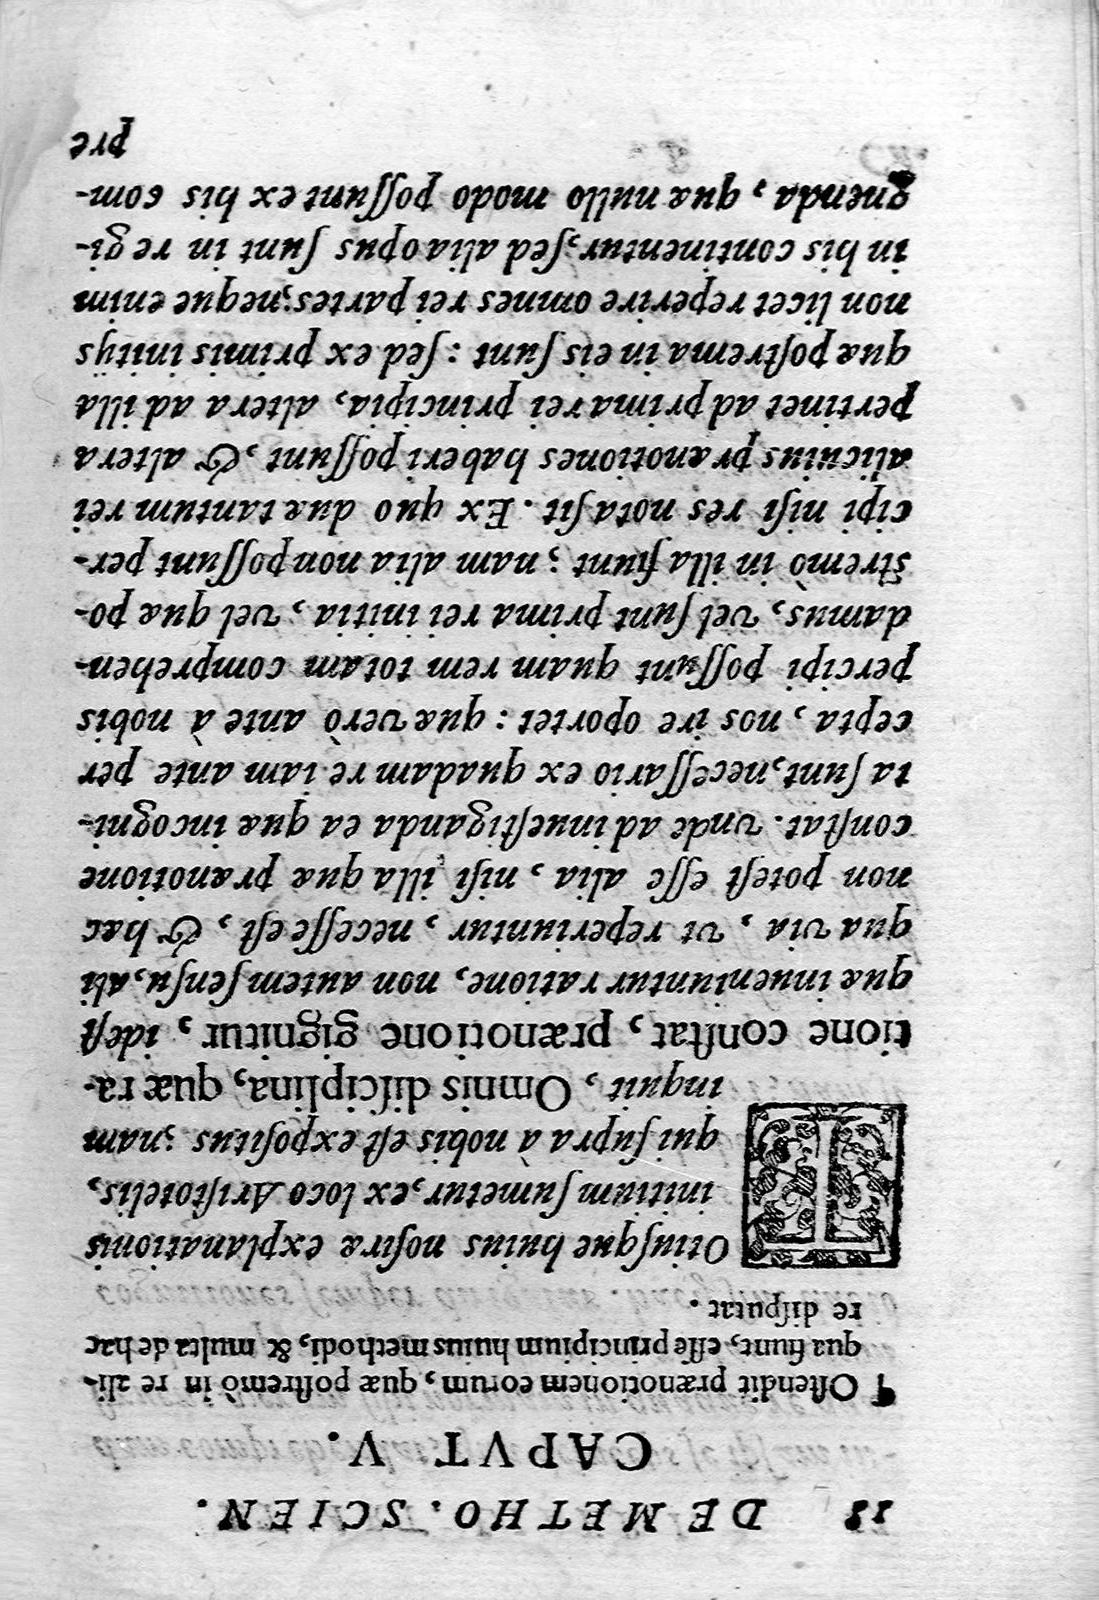 18 DE METHO. SCIEN.
CAPVT. V.
¶ Oſtendit prænotionem eorum, quæ poſtremò in re ali-
qua fiunt, eſſe principium huius methodi, & multa de hac
re diſputat.
TOtiuſque huius noſtræ explanationis
initium ſumetur, ex loco Ariſtotelis,
qui ſupra à nobis eſt expoſitus; nam
inquit, Omnis diſciplina, quæ ra-
tione conſtat, prænotione gignitur, ideſt
quæ inueniuntur ratione, non autem ſenſu, ali
qua via, vt reperiuntur, neceſſe eſt, & hæc
non poteſt eſſe alia, niſi illa quæ prænotione
conſtat. vnde ad inueſtiganda ea quæ incogni-
ta ſunt, neceſſario ex quadam re iam ante per
cepta, nos ire oportet: quæ verò ante à nobis
percipi poſſunt quam rem totam comprehen-
damus, vel ſunt prima rei initia, vel quæ po-
ſtremò in illa fiunt; nam alia non poſſunt per-
cipi niſi res nota ſit. Ex quo duæ tantum rei
alicuius prænotiones haberi poſſunt, & altera
pertinet ad prima rei principia, altera ad illa
quæ poſtrema in eis ſunt: ſed ex primis initijs
non licet reperire omnes rei partes; neque enim
in his continentur, ſed alia opus ſunt in re gi-
gnenda, quæ nullo modo poſſunt ex his com-
pre